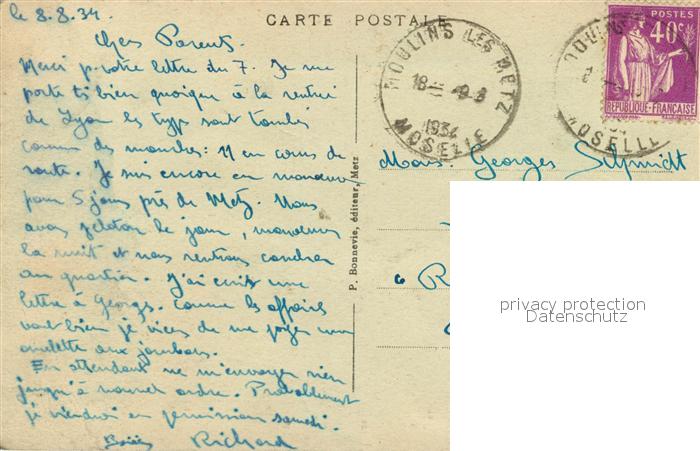 le 8.8.34.
CARTE POSTALE
Chers Parents.
Merci p. votre lettre du 7. Je me
porte ts bien quoique à la rentrée
de Lyon les types sont tombés
comme des mouches: 11 en cours de
route. Je suis encore en manœuvre
pour 5 jours près de Metz. Nous
avons peloton le jour, manœuvres
la nuit et nous rentrons coucher
au quartier. J'ai écrit une
lettre à Georges. Comme les affaires
vont bien je viens de me payer une
omelette aux jambons.
En attendant ne m'envoyer rien
jusqu'à nouvel ordre. Probablement
je viendrai en permission samedi.
Richard
P. Bonnevie, éditeur, Metz
MOULINS LES METZ
18 - 9-8
1934
MOSELLE
POSTES
40c
REPUBLIQUE-FRANÇAISE
MOSELLE
Mons. Georges Schmidt
à R
privacy protection
Datenschutz